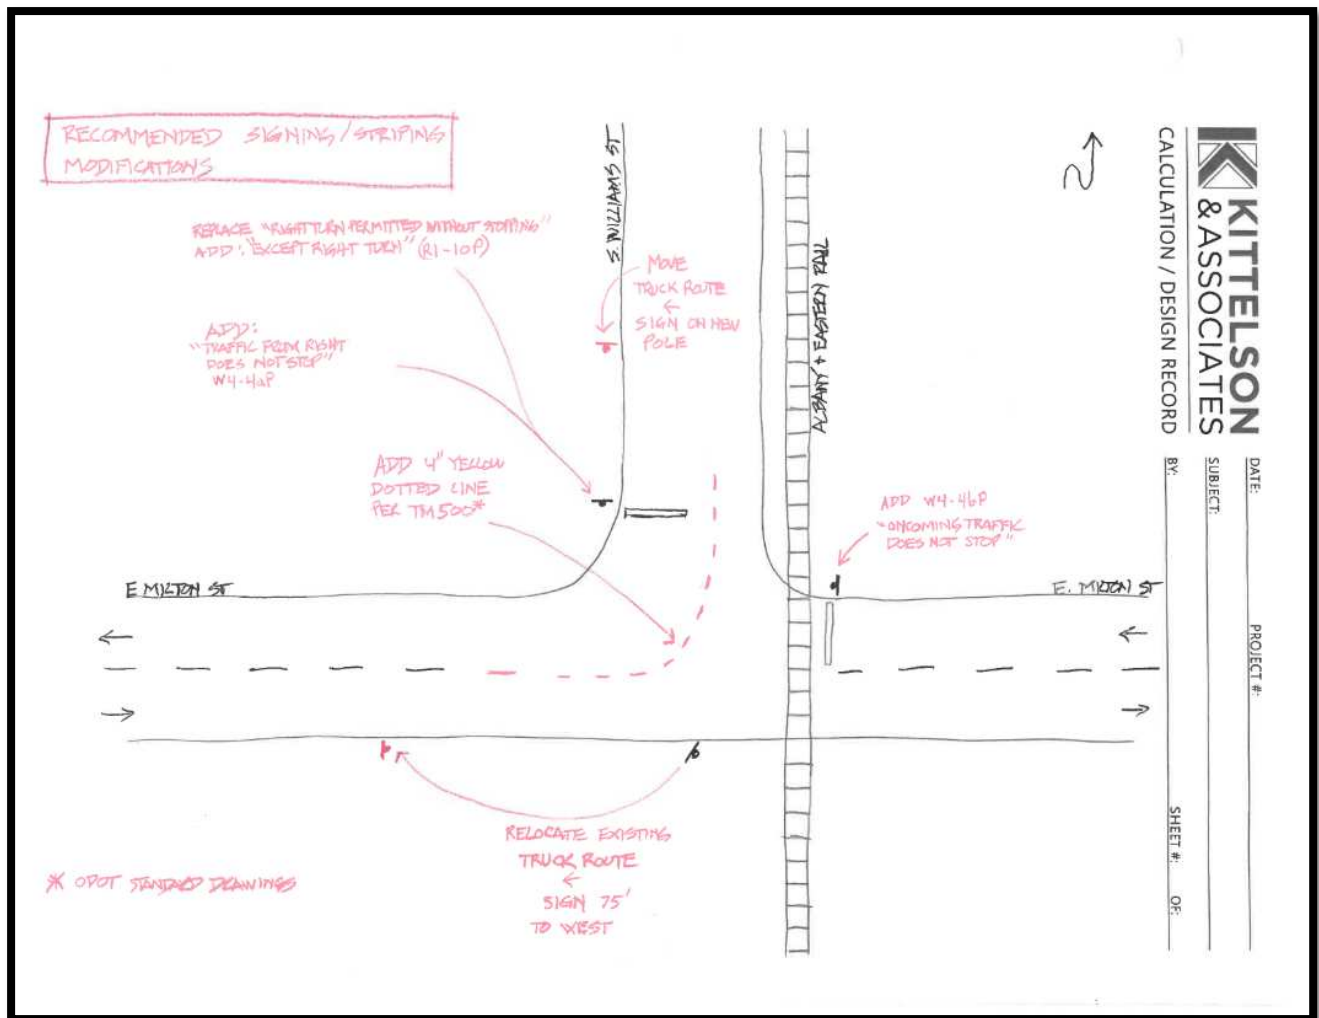 RECOMMENDED SIGNING/STRIPING
MODIFICATIONS
REPLACE "RIGHT TURN PERMITTED WITHOUT STOPPING"
ADD: "EXCEPT RIGHT TURN" (R1-10P)
ADD:
"TRAFFIC FROM RIGHT
DOES NOT STOP"
W4-4aP
S. WILLIAMS ST
MOVE
TRUCK ROUTE
←
SIGN ON NEW
POLE
ALBANY & EASTERN RAIL
ADD 4" YELLOW
DOTTED LINE
PER TM500*
ADD W4-4bP
"ONCOMING TRAFFIC
DOES NOT STOP"
E MILTON ST
E. MILTON ST
RELOCATE EXISTING
TRUCK ROUTE
←
SIGN 75'
TO WEST
* ODOT STANDARD DRAWINGS
N
KITTELSON
& ASSOCIATES
CALCULATION / DESIGN RECORD
DATE:
PROJECT #:
SUBJECT:
BY:
SHEET #: OF: